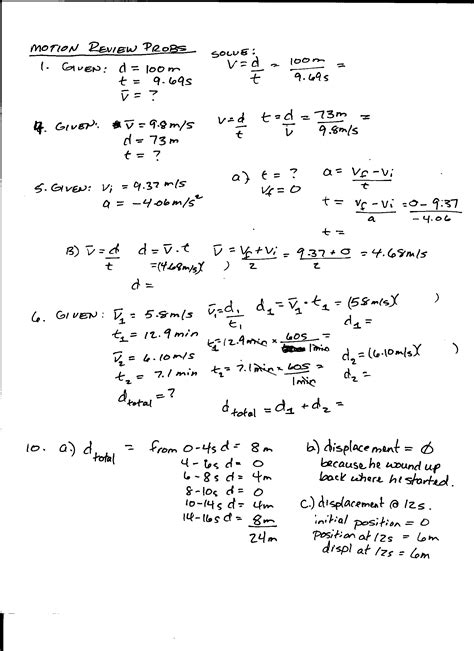 MOTION REVIEW PROBS
SOLVE:
1. GIVEN: d = 100m
t = 9.69s
v̄ = ?
v̄ = d/t = 100m/9.69s =
4. GIVEN: v̄ = 9.8m/s
d = 73m
t = ?
v̄ = d/t t = d/v̄ = 73m/9.8m/s =
5. GIVEN: vi = 9.37 m/s
a = -4.06m/s²
a) t = ? a = vf - vi/t
vf = 0
t = vf - vi/a = 0 - 9.37/-4.06
t =
B) v̄ = d/t d = v̄·t v̄ = vf + vi/2 = 9.37 + 0/2 = 4.68m/s
= (4.68m/s)( )
d =
6. GIVEN: v̄1 = 5.8m/s
t1 = 12.9 min
v̄2 = 6.10m/s
t2 = 7.1 min
dtotal = ?
v̄1 = d1/t1 d1 = v̄1 · t1 = (5.8m/s)( )
d1 =
t1 = 12.9min × 60s/1min =
d2 = (6.10m/s)( )
t2 = 7.1min × 60s/1min =
d2 =
dtotal = d1 + d2 =
10. a.) dtotal = from 0-4s d = 8m
4-6s d = 0
6-8s d = 4m
8-10s d = 0
10-14s d = 4m
14-16s d = 8m
24m
b) displacement = 0
because he wound up
back where he started.
c.) displacement @ 12s.
initial position = 0
position at 12s = 6m
displ at 12s = 6m